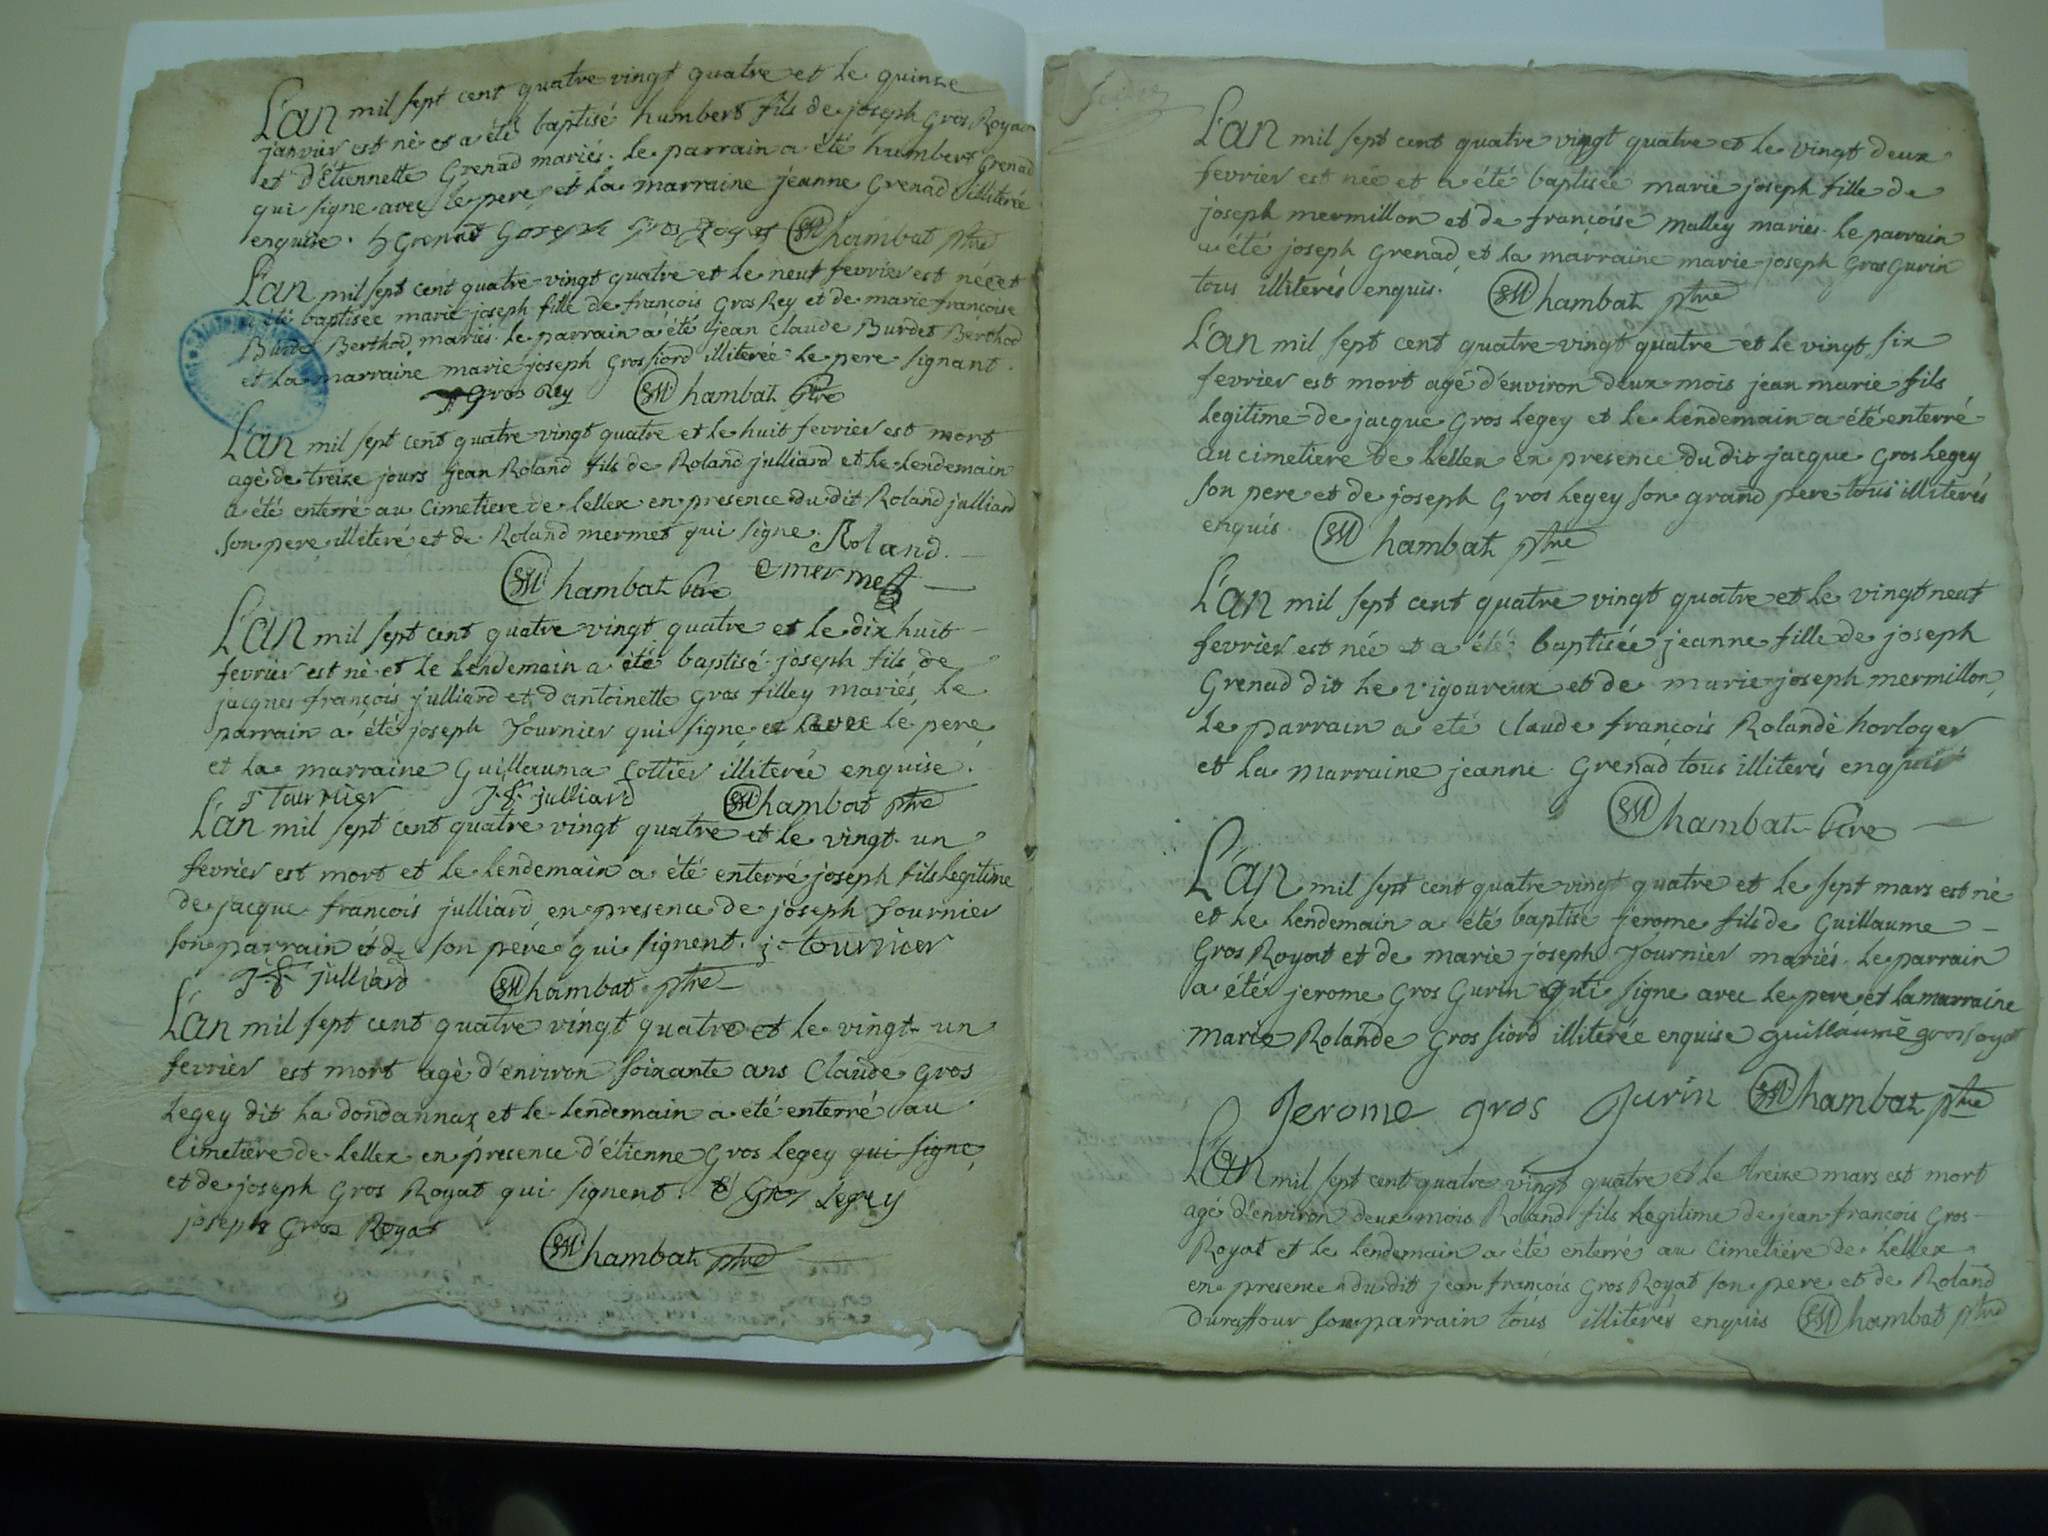 L'an mil sept cent quatre vingt quatre et le quinze
janvier est né et a été baptisé humbert fils de joseph Gros Royat
et d'Etiennette Grenad mariés. le parrain a été humbert Grenad
qui signe avec le pere et la marraine jeanne Grenad illiterée
enquise. h Grenat Joseph Gros Royat SM Chambat ptre
L'an mil sept cent quatre-vingt quatre et le neuf fevrier est née et
a été baptisée marie joseph fille de françois Gros Rey et de marie françoise
Burdet Berthod mariés. le parrain a été jean Claude Burdet Berthod
et la marraine marie joseph Gros fiord illiterée le pere signant.
f Gros Rey SM Chambat ptre
L'an mil sept cent quatre vingt quatre et le huit fevrier est mort
agé de treize jours jean Roland fils de Roland julliard et le lendemain
a été enterré au Cimetiere de Lellex en presence du dit Roland julliard
son pere illiteré et de Roland mermet qui signe. Roland
SM Chambat ptre mermet
L'an mil sept cent quatre vingt quatre et le dix huit
fevrier est né et le lendemain a été baptisé joseph fils de
jacques françois julliard et d'antoinette Gros filley mariés, le
parrain a été joseph Fournier qui signe et avec le pere
et la marraine Guillauma Cottier illiterée enquise.
j fournier j. f. julliard SM Chambat ptre
L'an mil sept cent quatre vingt quatre et le vingt un
fevrier est mort et le lendemain a été enterré joseph fils legitime
de jacque françois julliard en presence de joseph Fournier
son parrain et de son pere qui signent. j fournier
j. f. julliard SM Chambat ptre
L'an mil sept cent quatre vingt quatre et le vingt un
fevrier est mort agé d'environ soixante ans Claude Gros
Legey dit la dondannaz et le lendemain a été enterré au
Cimetiere de Lellex en presence d'étienne Gros Legey qui signe
et de joseph Gros Royat qui signent. E Gros Legey
joseph Gros Royat
SM Chambat ptre
L'an mil sept cent quatre vingt quatre et le vingt deux
fevrier est née et a été baptisée marie joseph fille de
joseph mermillon et de françoise Malley mariés. le parrain
a été joseph Grenad et la marraine marie joseph Gros Gurin
tous illiterés enquis. SM Chambat ptre
L'an mil sept cent quatre-vingt quatre et le vingt six
fevrier est mort agé d'environ deux mois jean marie fils
legitime de jacque Gros Legey et le lendemain a été enterré
au cimetiere de Lellex en presence du dit jacque Gros Legey
son pere et de joseph Gros Legey son grand pere tous illiterés
enquis. SM Chambat ptre
L'an mil sept cent quatre vingt quatre et le vingt neuf
fevrier est née et a été baptisée jeanne fille de joseph
Grenad dit le vigoureux et de marie joseph mermillon,
le parrain a été Claude françois Rolande horloger
et la marraine jeanne Grenad tous illiterés enquis
SM Chambat ptre
L'an mil sept cent quatre vingt quatre et le sept mars est né
et le lendemain a été baptisé jerome fils de Guillaume
Gros Royat et de marie joseph Fournier mariés. le parrain
a été jerome Gros Gurin qui signe avec le pere et la marraine
Marie Rolande Gros fiord illiterée enquise guillaume gros royat
Jerome gros Jurin SM Chambat ptre
L'an mil sept cent quatre vingt quatre et le treize mars est mort
agé d'environ deux mois Roland fils legitime de jean françois Gros
Royat et le lendemain a été enterré au Cimetiére de Lellex
en presence du dit jean françois Gros Royat son pere et de Roland
Duraffour son parrain tous illiterés enquis SM Chambat ptre